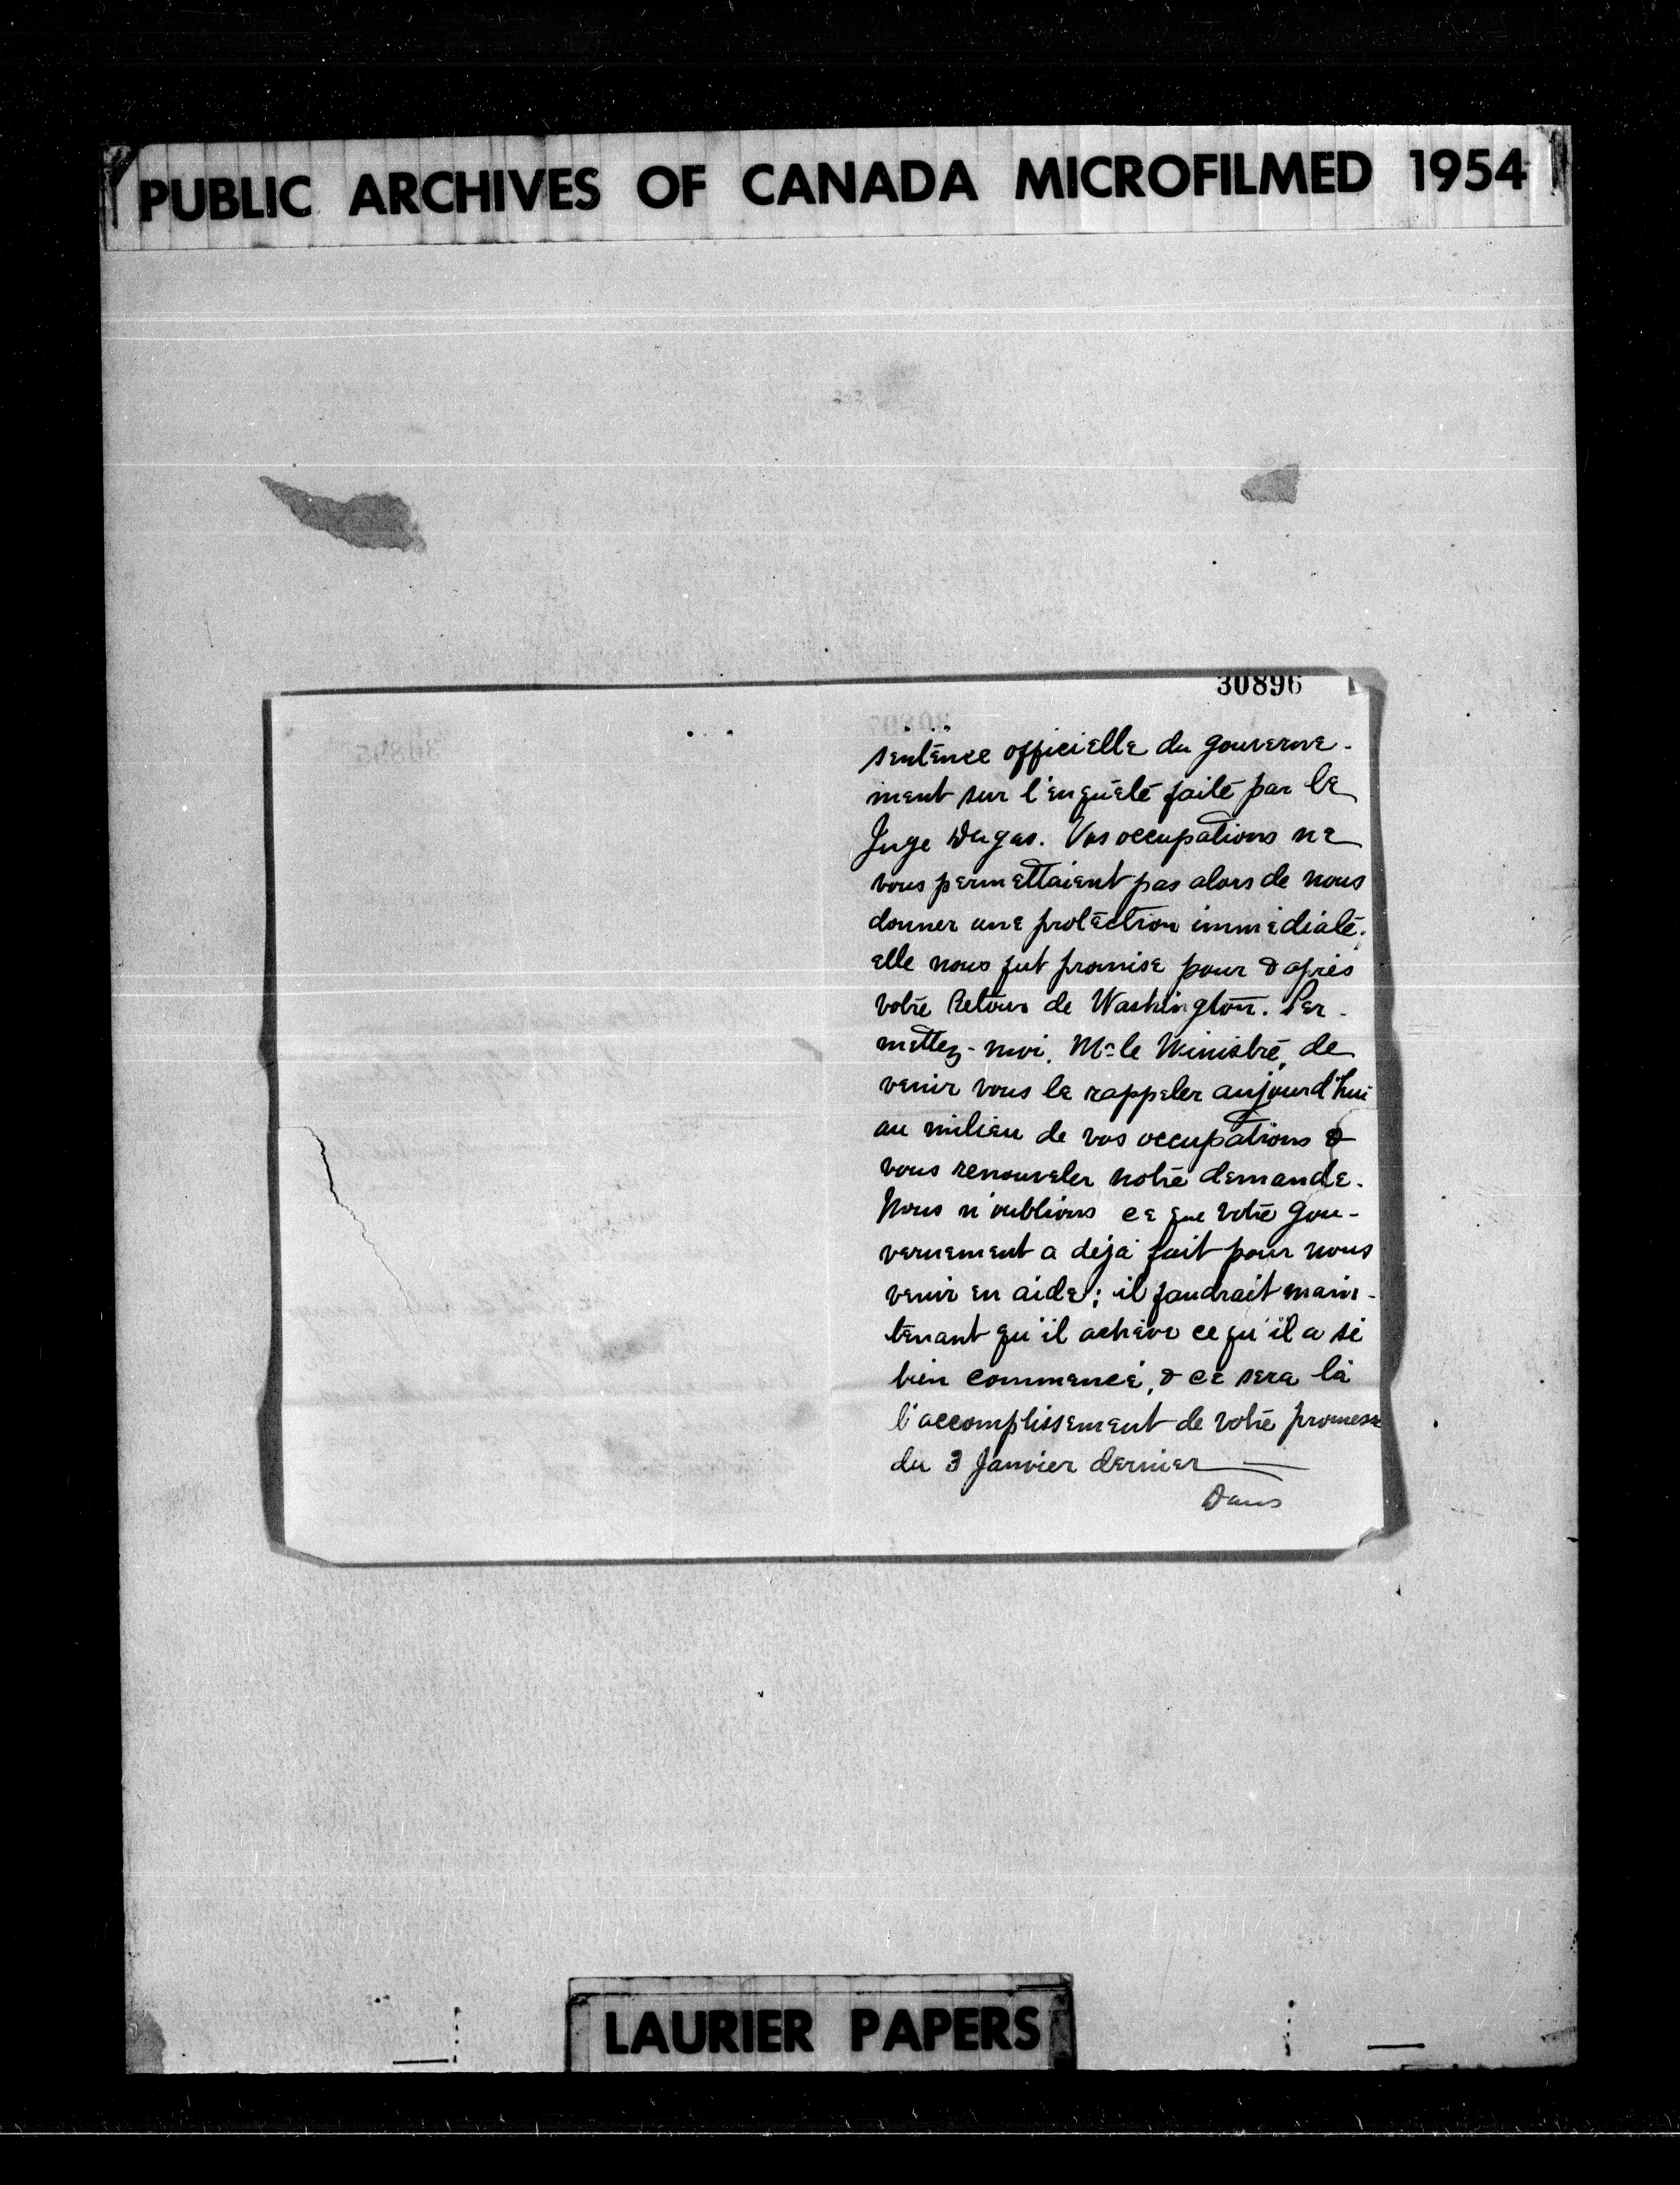 PUBLIC ARCHIVES OF CANADA MICROFILMED 1954
30896
sentence officielle du gouverne-
ment sur l'enquête faite par le
Juge Dugas. Vos occupations ne
vous permettaient pas alors de nous
donner une protection immédiate;
elle nous fut promise pour d'après
votre retour de Washington. Per-
mettez-moi, Mr le Ministre, de
venir vous le rappeler aujourd'hui
au milieu de vos occupations &
vous renouveler notre demande.
Nous n'oublions ce que votre gou-
vernement a déjà fait pour nous
venir en aide; il faudrait main-
tenant qu'il achève ce qu'il a si
bien commencé, & ce sera là
l'accomplissement de votre promesse
du 3 Janvier dernier
Dans
LAURIER PAPERS